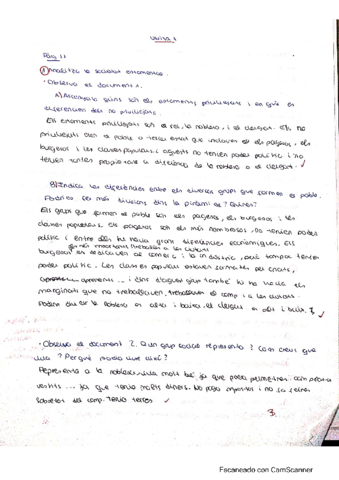 Unitat 1
Pàg 11
1) Analitza la societat estamental
• Observa el document 1.
A) Assenyala quins són els estaments privilegiats i en què es
diferencien dels no privilegiats.
Els estaments privilegiats són el rei, la noblesa, i el clergat. Els no
privilegiats eren el poble o tercer estat que inclouen els pagesos, els
burgesos i les classes populars, i aquests no tenien poder polític i no
tenien propietats a diferència de la noblesa o el clergat.
B) Indica les diferències entre els diversos grups que formen el poble.
Podries fer més divisions dins la piràmide? Quines?
Els grups que formen el poble són els pagesos, els burgesos i les
classes populars. Els pagesos són els més nombrosos. No tenien poder
polític i entre ells hi havia grans diferències econòmiques. Els
burgesos es dedicaven al comerç i la indústria, però tampoc tenien
poder polític. Les classes populars estaven formades per criats,
aprenents... i dins d'aquest grup també hi ha havia els
marginats que no treballaven,
Podem dividir la noblesa en alta i baixa. El clergat en alt i baix.
• Observa el document 2. Quin grup social representa? Com creus que
vivia? Per què podia viure així?
Representa a la noblesa. Vivia molt bé, ja que podia permetre's comprar
vestits ... ja que tenia molts diners. No paga impostos i no ha
tenia terres
3.
Escaneado con CamScanner